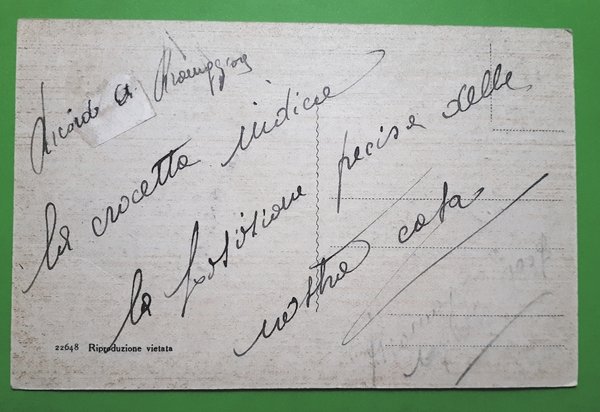 Ricordo di Riomaggiore
la crocetta indica
la posisione precisa delle
nostra casa
22648 Riproduzione vietata